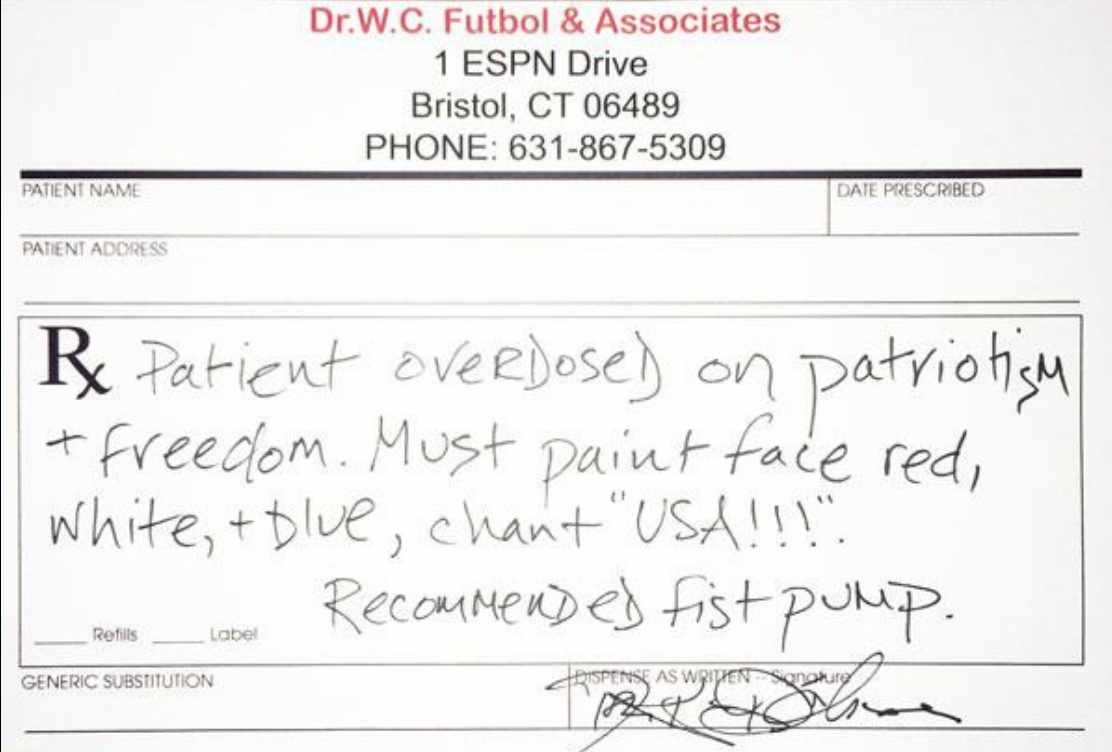 Dr.W.C. Futbol & Associates
1 ESPN Drive
Bristol, CT 06489
PHONE: 631-867-5309
PATIENT NAME
DATE PRESCRIBED
PATIENT ADDRESS
Rx Patient overdosed on patriotism
+ freedom. Must paint face red,
white, + blue, chant "USA!!!".
Recommended fist pump.
____ Refills ____ Label
GENERIC SUBSTITUTION
DISPENSE AS WRITTEN -- Signature